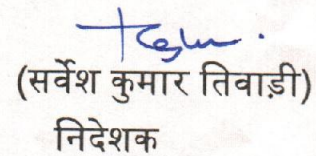 (सर्वेश कुमार तिवाड़ी)
निदेशक